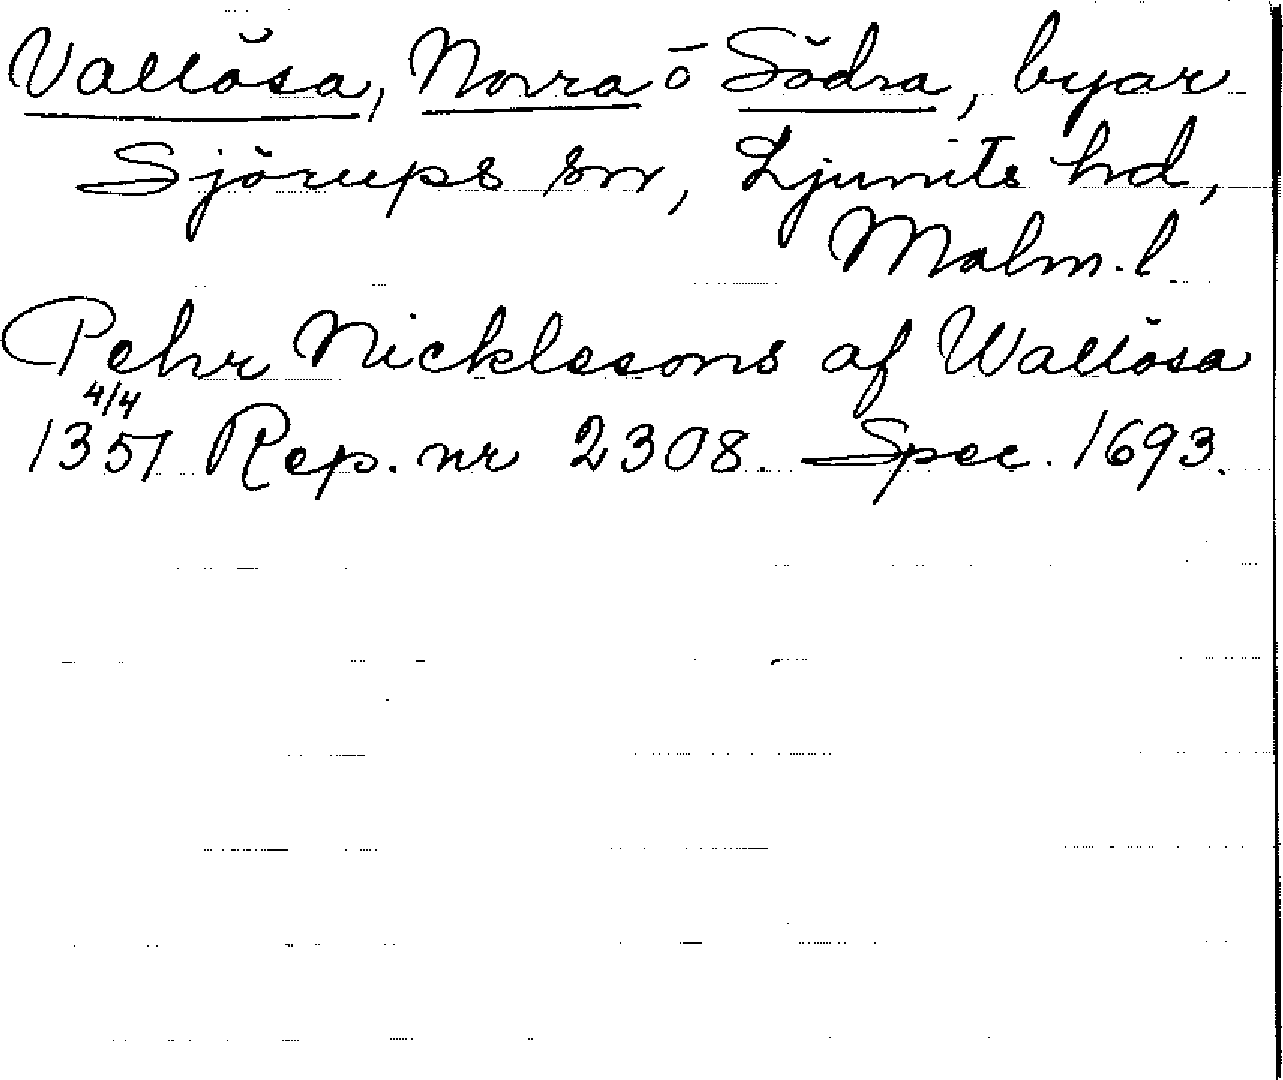 Vallösa, Norra o Södra, byar
Sjörups sn, Ljunits hd,
Malm. l
Pehr Nicklessons af Wallösa
4/4
1357 Rep. nr 2308. Spec. 1693.